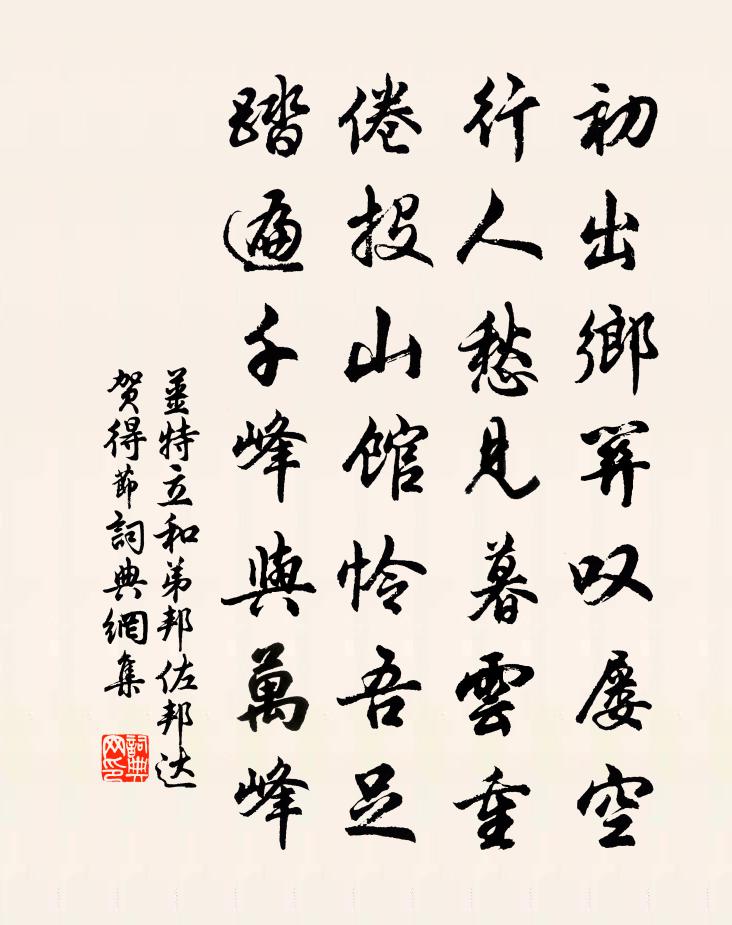 初出鄉關叹屡空
行人愁見暮雲重
倦投山館怜吾足
踏遍千峰與萬峰
姜特立和弟邦佐邦达
贺得節詞典網集
詞典網印